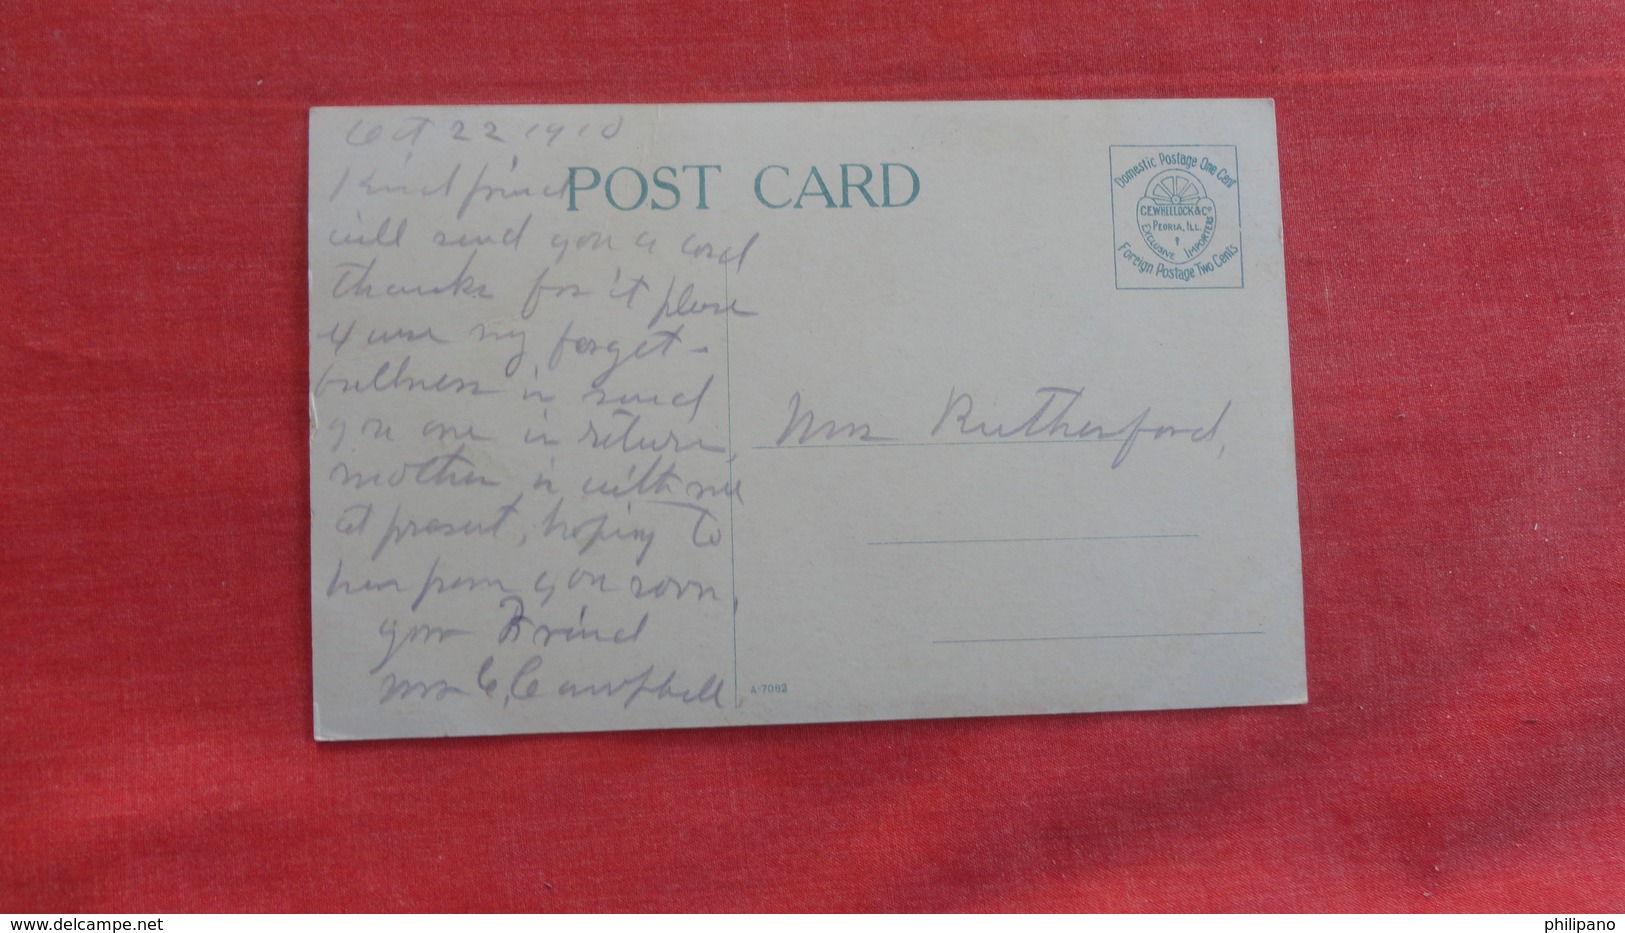 Oct 22 1910
Kind friend
POST CARD
will send you a card
thanks for it please
excuse my forget-
fullness in send
you one in return,
mother is with me
at present, hoping to
hear from you soon,
your Friend
Mrs C, Campbell
Mrs Rutherford,
Domestic Postage One Cent
C.E.WHEELOCK & Co
PEORIA, ILL.
EXCLUSIVE IMPORTERS
Foreign Postage Two Cents
A-7062
philipano